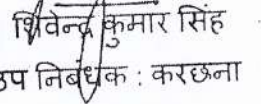 शिवेन्द्र कुमार सिंह
उप निबंधक : करछना